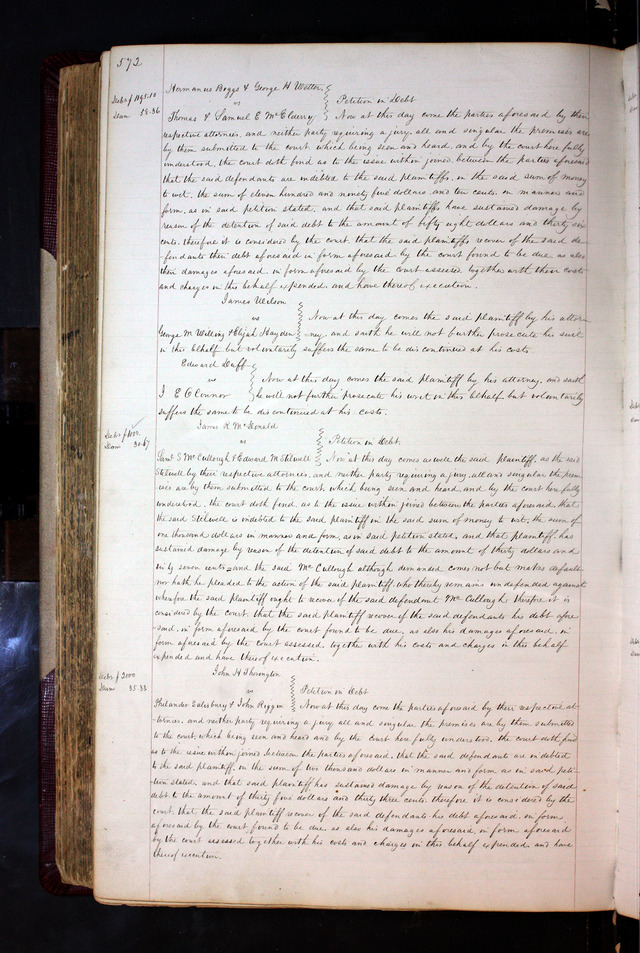 572
Hermanus Boggs & George H Welter
Debt $1195.10
Dam 58.36
vs Petition in Debt
Thomas & Samuel E McElderry Now at this day come the parties aforesaid by their
respective attornies, and neither party requiring a jury, all and singular the premises are
by them submitted to the court, which being seen and heard, and by the court here fully
understood, the court doth find as to the issue within joined, between the parties aforesaid
that the said defendants are indebted to the said plaintiffs, in the said sum of money
to wit, the sum of eleven hundred and ninety five dollars, and ten cents, in manner and
form, as in said petition stated, and that said plaintiffs have sustained damage by
reason of the detention of said debt to the amount of fifty eight dollars and thirty six
cents, therefore it is considered by the court, that the said plaintiffs recover of the said de-
fendants their debt aforesaid in form aforesaid by the court found to be due, as also
their damages aforesaid, in form aforesaid by the court assessed, together with their costs
and charges in this behalf expended, and have thereof execution.
James Wilson
vs Now at this day comes the said plaintiff by his attor
George M. Willing & Elijah Hayden ney, and saith he will not further prosecute his suit
in this behalf but voluntarily suffers the same to be discontinued at his costs
Edward Duff
vs Now at this day comes the said plaintiff by his attorney, and saith
J E O Connor he will not further prosecute his writ in this behalf but voluntarily
suffers the same to be discontinued at his costs.
James K McDonald
Debt $1000.
Dam 30.67
vs Petition in Debt.
S McCullough & Edward M Stilwell Now at this day comes as well the said plaintiff, as the said
Stilwell by their respective attornies, and neither party requiring a jury, all and singular the prem-
ises are by them submitted to the court, which being seen and heard, and by the court here fully
understood, the court doth find, as to the issue within joined between the parties aforesaid, that
the said Stilwell is indebted to the said plaintiff in the said sum of money to wit, the sum of
one thousand dollars in manner and form, as in said petition stated, and that plaintiff, has
sustained damage by reason of the detention of said debt to the amount of thirty dollars and
sixty seven cents and the said McCullough although demanded comes not but makes default
nor hath he pleaded to the action of the said plaintiff, who thereby remains undefended against
wherefore the said plaintiff ought to recover of the said defendant McCullough therefore it is
considered by the court, that the said plaintiff recover of the said defendants his debt afore
said, in form aforesaid by the court found to be due, as also his damages aforesaid, in
form aforesaid by the court assessed, together with his costs and charges in this behalf
expended and have thereof execution.
John H Thorington
Debt $2000
Dam 35.33
vs Petition in Debt
Philander Salisbury & John Riggin Now at this day come the parties aforesaid by their respective at-
tornies, and neither party requiring a jury, all and singular the premises are by them submitted
to the court, which being seen and heard and by the court here fully understood, the court doth find
as to the issue within joined between the parties aforesaid, that the said defendants are indebted
to the said plaintiff, in the sum of two thousand dollars in manner and form as in said peti-
tion stated, and that said plaintiff has sustained damage by reason of the detention of said
debt to the amount of thirty five dollars and thirty three cents, therefore it is considered by the
court, that the said plaintiff recover of the said defendants his debt aforesaid, in form
aforesaid by the court found to be due, as also his damages aforesaid, in form aforesaid
by the court assessed together with his costs and charges in this behalf expended, and have
thereof execution.